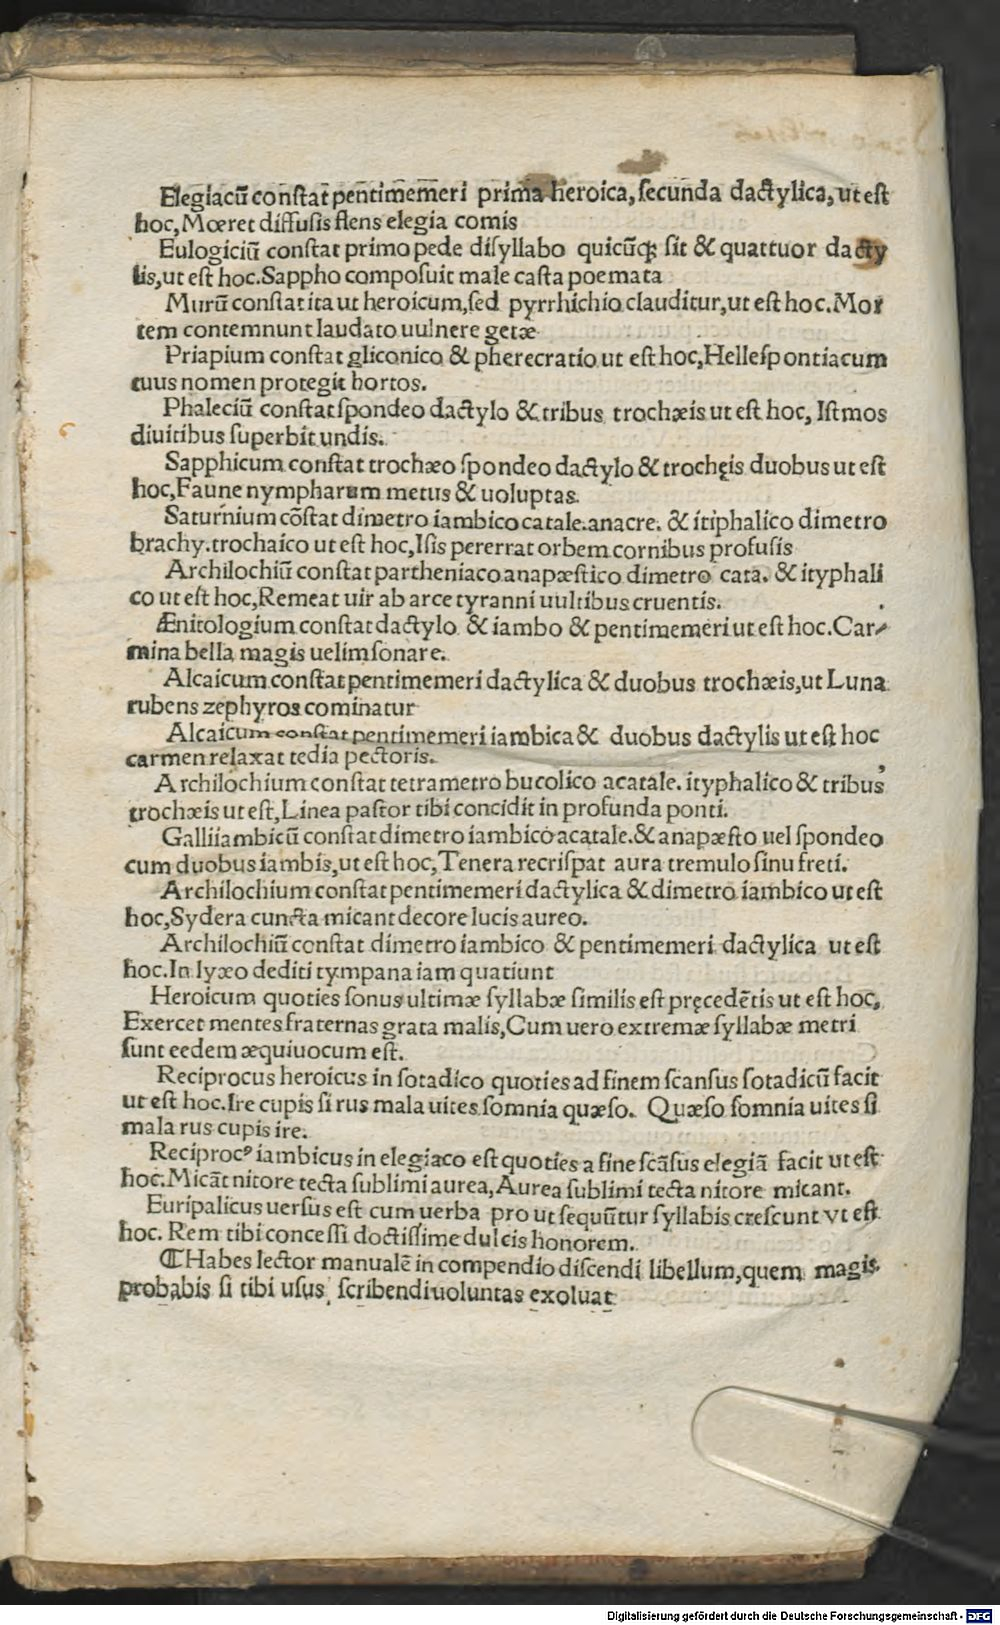 Elegiacũ conſtat pentimemeri prima heroica, ſecunda dactylica, ut eſt
hoc, Mœret diffuſis flens elegia comis
Eulogiciũ conſtat primo pede diſyllabo quicũqꝫ ſit & quattuor dacty
lis, ut eſt hoc. Sappho compoſuit male caſta poemata
Murũ conſtat ita ut heroicum, ſed pyrrhichio clauditur, ut eſt hoc. Mor
tem contemnunt laudato uulnere getæ
Priapium conſtat gliconico & pherecratio ut eſt hoc, Helleſpontiacum
tuus nomen protegit hortos.
Phaleciũ conſtat ſpondeo dactylo & tribus trochæis ut eſt hoc, Iſtmos
diuitibus ſuperbit undis.
Sapphicum conſtat trochæo ſpondeo dactylo & trochęis duobus ut eſt
hoc, Faune nympharum metus & uoluptas.
Saturnium cõſtat dimetro iambico catale. anacre. & itiphalico dimetro
brachy. trochaico ut eſt hoc, Iſis pererrat orbem cornibus profuſis
Archilochiũ conſtat partheniaco anapæſtico dimetro cata. & ityphali
co ut eſt hoc, Remeat uir ab arce tyranni uultibus cruentis.
Ænitologium conſtat dactylo & iambo & pentimemeri ut eſt hoc. Car⸗
mina bella magis uelim ſonare.
Alcaicum conſtat pentimemeri dactylica & duobus trochæis, ut Luna
rubens zephyros cominatur
Alcaicum conſtat pentimemeri iambica & duobus dactylis ut eſt hoc
carmen relaxat tedia pectoris.
Archilochium conſtat tetrametro bucolico acatale. ityphalico & tribus
trochæis ut eſt, Linea paſtor tibi concidit in profunda ponti.
Galliiambicũ conſtat dimetro iambico acatale. & anapæſto uel ſpondeo
cum duobus iambis, ut eſt hoc, Tenera recriſpat aura tremulo ſinu freti.
Archilochium conſtat pentimemeri dactylica & dimetro iambico ut eſt
hoc, Sydera cuncta micant decore lucis aureo.
Archilochiũ conſtat dimetro iambico & pentimemeri dactylica ut eſt
hoc. In lyæo dediti tympana iam quatiunt
Heroicum quoties ſonus ultimæ ſyllabæ ſimilis eſt pręcedẽtis ut eſt hoc,
Exercet mentes fraternas grata malis, Cum uero extremæ ſyllabæ metri
ſunt eedem æquiuocum eſt.
Reciprocus heroicus in ſotadico quoties ad finem ſcanſus ſotadicũ facit
ut eſt hoc. Ire cupis ſi rus mala uites ſomnia quæſo. Quæſo ſomnia uites ſi
mala rus cupis ire.
Reciprocꝰ iambicus in elegiaco eſt quoties a fine ſcãſus elegiã facit ut eſt
hoc. Micãt nitore tecta ſublimi aurea, Aurea ſublimi tecta nitore micant.
Euripalicus uerſus eſt cum uerba prout ſequũtur ſyllabis creſcunt vt eſt
hoc. Rem tibi conceſſi doctiſſime dulcis honorem.
⸿Habes lector manualẽ in compendio diſcendi libellum, quem magis
probabis ſi tibi uſus ſcribendi uoluntas exoluat
Digitalisierung gefördert durch die Deutsche Forschungsgemeinschaft - DFG